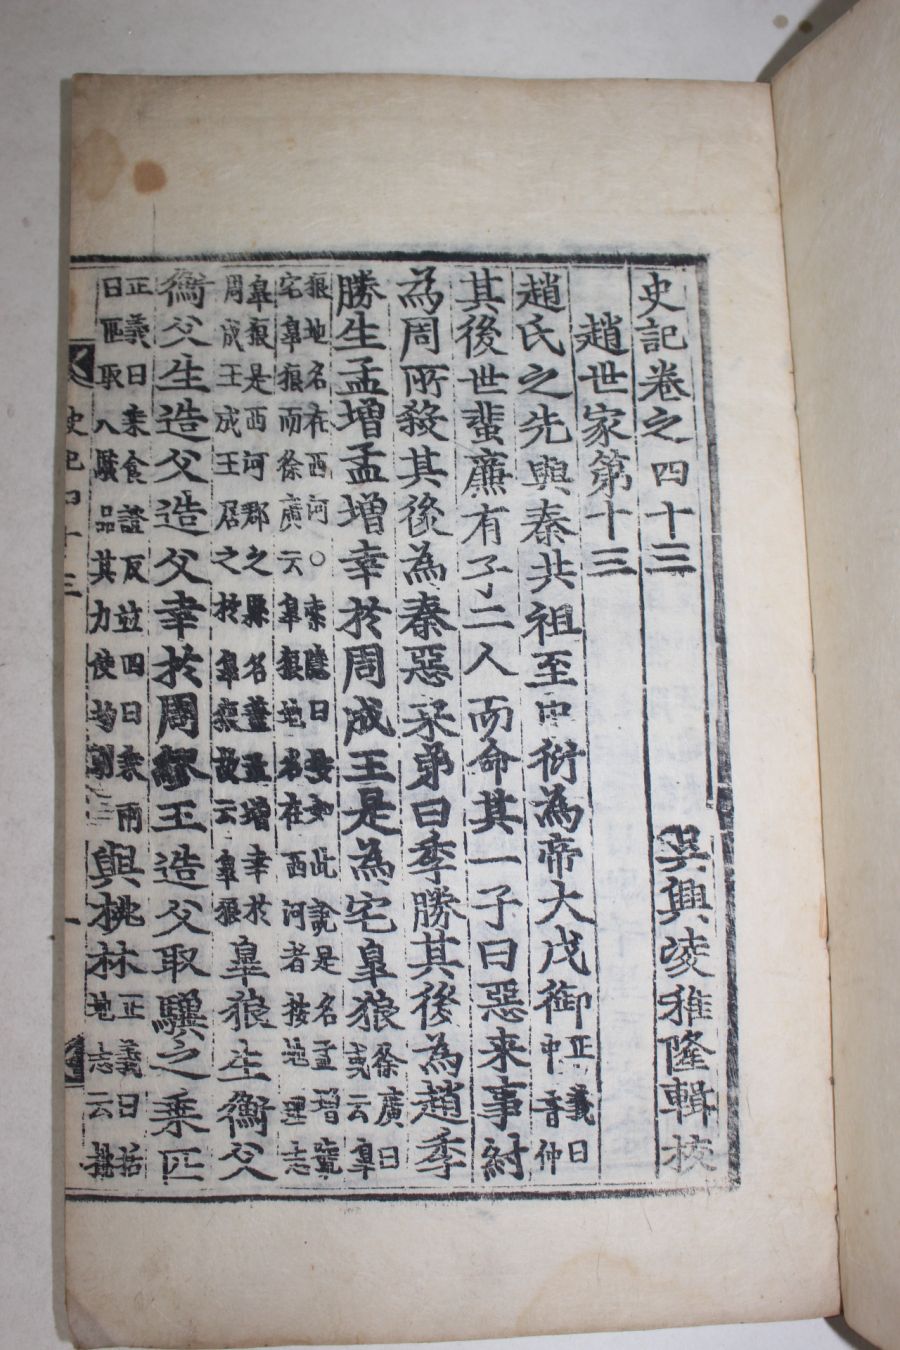 史記卷之四十三
吳興凌稚隆輯校
趙世家第十三
趙氏之先與秦共祖至中衍為帝大戊御正義曰中音仲
其後世蜚廉有子二人而命其一子曰惡来事紂
為周所殺其後為秦惡来弟曰季勝其後為趙季
勝生孟增孟增幸於周成王是為宅皐狼徐廣曰或云皐
狼地名在西河○索隱曰按如此說是名孟增號
宅皐狼而徐廣云皐狼地名在西河者按地理志
皐狼是西河郡之縣名蓋孟增幸於
周成王成王居之於皐狼故云皐狼
皐狼生衡父
衡父生造父造父幸於周繆王造父取驥之乗匹
正義曰乗食證反並四曰乗兩
曰匹取八駿品其力使均馴
與桃林正義曰括
地志云桃
史記四十三
一